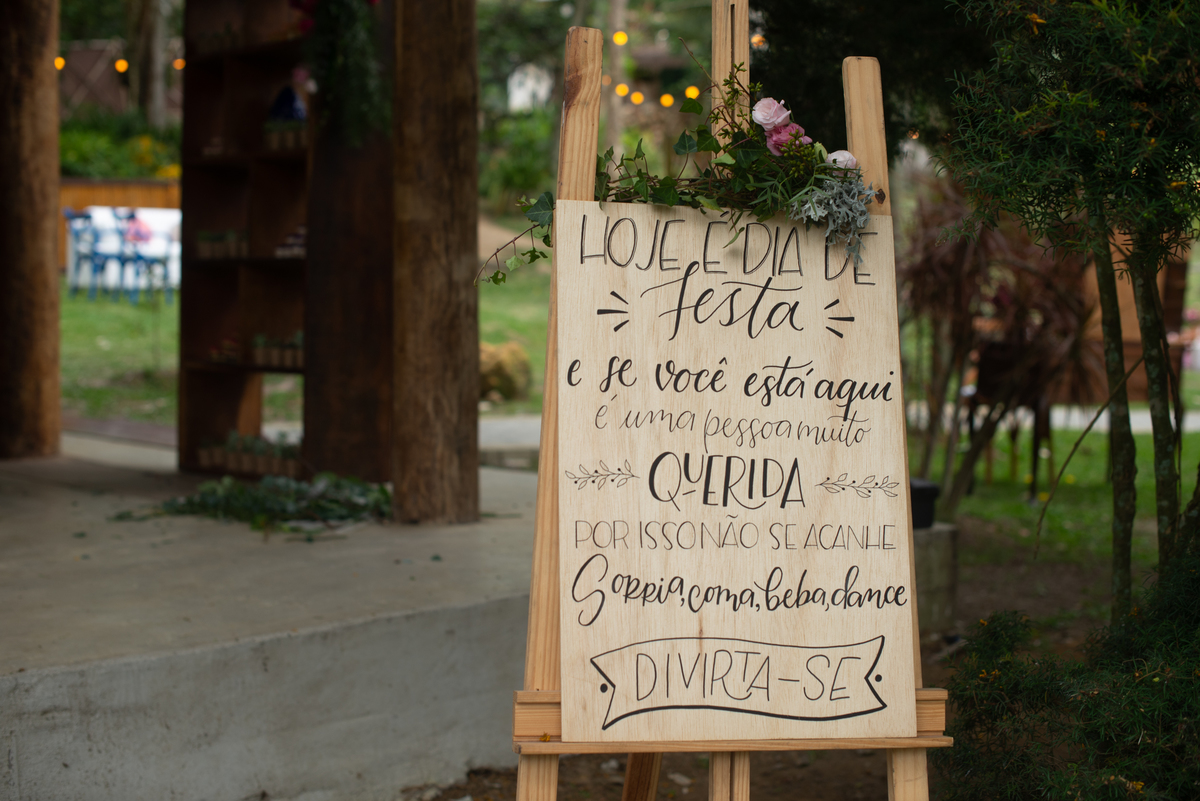 HOJE É DIA DE
festa
e se você está aqui
é uma pessoa muito
QUERIDA
POR ISSO NÃO SE ACANHE
Sorria, coma, beba, dance
DIVIRTA-SE